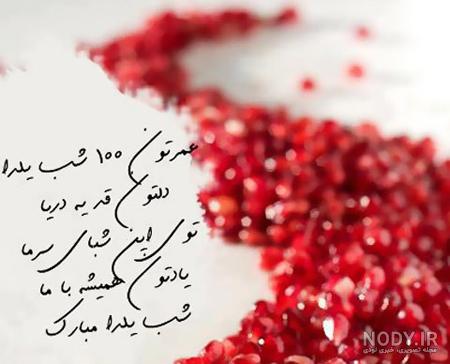 عمرتون ۱۰۰ شب یلدا
دلتون قد یه دریا
توی این شبای سرما
یادتون همیشه با ما
شب یلدا مبارک
NODY.IR
مجله تصویری، خبری نودی